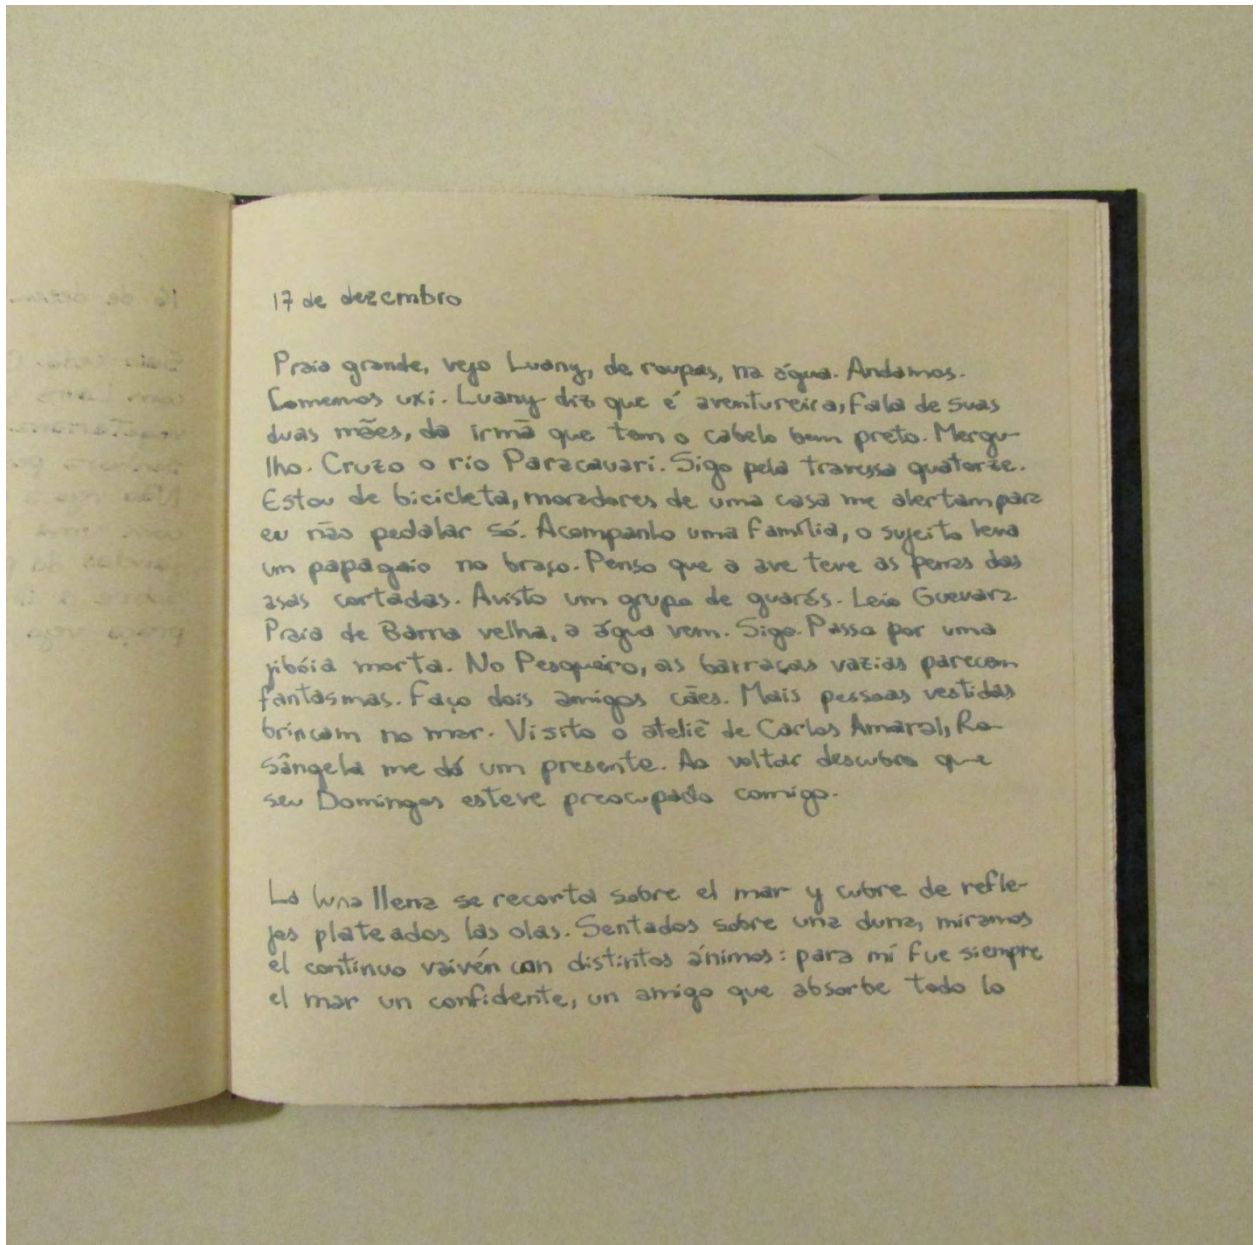 17 de dezembro
Praia grande, vejo Luany, de roupas, na água. Andamos.
Comemos uxi. Luany diz que é aventureira, fala de suas
duas mães, da irmã que tem o cabelo bem preto. Mergu-
lho. Cruzo o rio Paracauari. Sigo pela travessa quatorze.
Estou de bicicleta, moradores de uma casa me alertam para
eu não pedalar só. Acompanho uma família, o sujeito leva
um papagaio no braço. Penso que a ave teve as penas das
asas cortadas. Avisto um grupo de guarás. Leio Guevara.
Praia de Barra velha, a água vem. Sigo. Passo por uma
jibóia morta. No Pesqueiro, as barracas vazias parecem
fantasmas. Faço dois amigos cães. Mais pessoas vestidas
brincam no mar. Visito o ateliê de Carlos Amaral, Ro-
sângela me dá um presente. Ao voltar descubro que
seu Domingos esteve preocupado comigo.
La luna llena se recorta sobre el mar y cubre de refle-
jos plateados las olas. Sentados sobre una duna, miramos
el continuo vaivén con distintos ánimos: para mí fue siempre
el mar un confidente, un amigo que absorbe todo lo